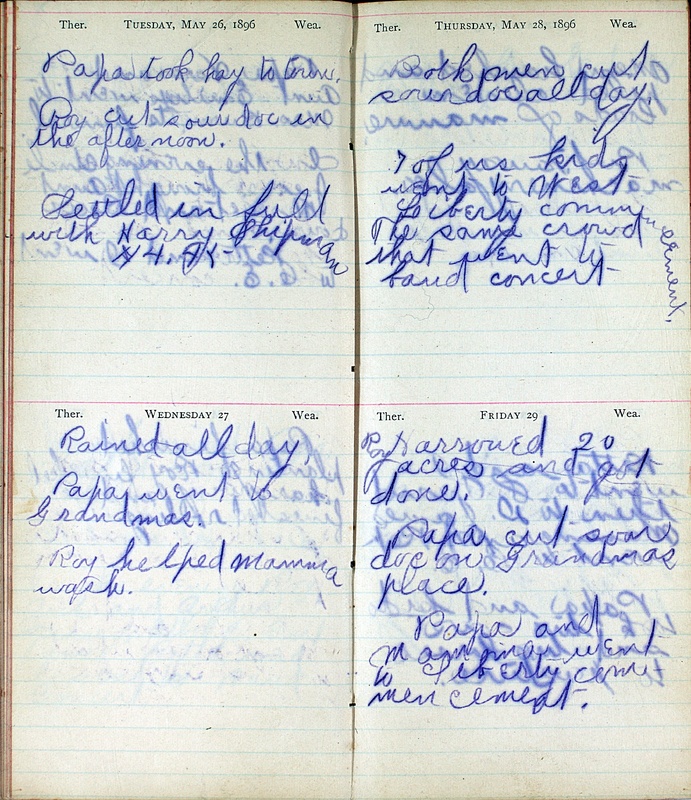 Ther. TUESDAY, MAY 26, 1896 Wea.
Papa took hay to town.
Roy cut sourdoc in
the afternoon.
Settled in full
with Harry Shipman
$4.75
Ther. WEDNESDAY 27 Wea.
Rained all day
Papa went to
Grandmas.
Roy helped mamma
wash.
Ther. THURSDAY, MAY 28, 1896 Wea.
Both men cut
sourdoc all day.
7 of us kids
went to West
Liberty commencement.
The same crowd
that went to
band concert
Ther. FRIDAY 29 Wea.
Roy harrowed 20
acres and got
done.
Papa cut sour
doc on Grandmas
place.
Papa and
Mamma went
to Liberty com-
mencement.